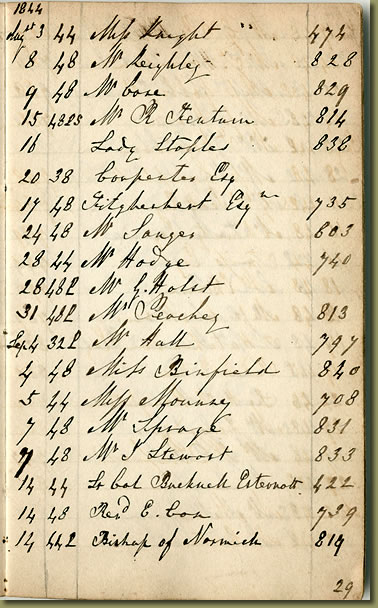 1844
Augst 3 44 Miss Knight " 474
8 48 Mr Keighley 828
9 48 Mr Case 829
15 48 Mr R Fentum 814
16 Lady Staples 838
20 38 Carpenter Esq
17 48 Fitzherbert Esqre 735
24 48 Mr Sanger 603
28 44 Mr Hodge 740
28 48L Mr G. Holst
31 48L Mrs Peachey 813
Sep 4 32L Mr Hall 797
4 48 Miss Binfield 840
5 44 Miss Mounsey 708
7 48 Mr Sprage 831
7 48 Mr J Stewart 833
14 44 Lt Col Bucknall 422
14 48 Revd E. Cox 739
14 44L Bishop of Norwich 819
29